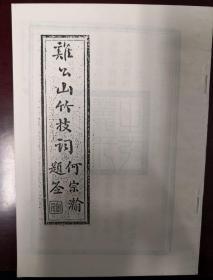 雞公山竹枝詞
何宗瀚
題簽